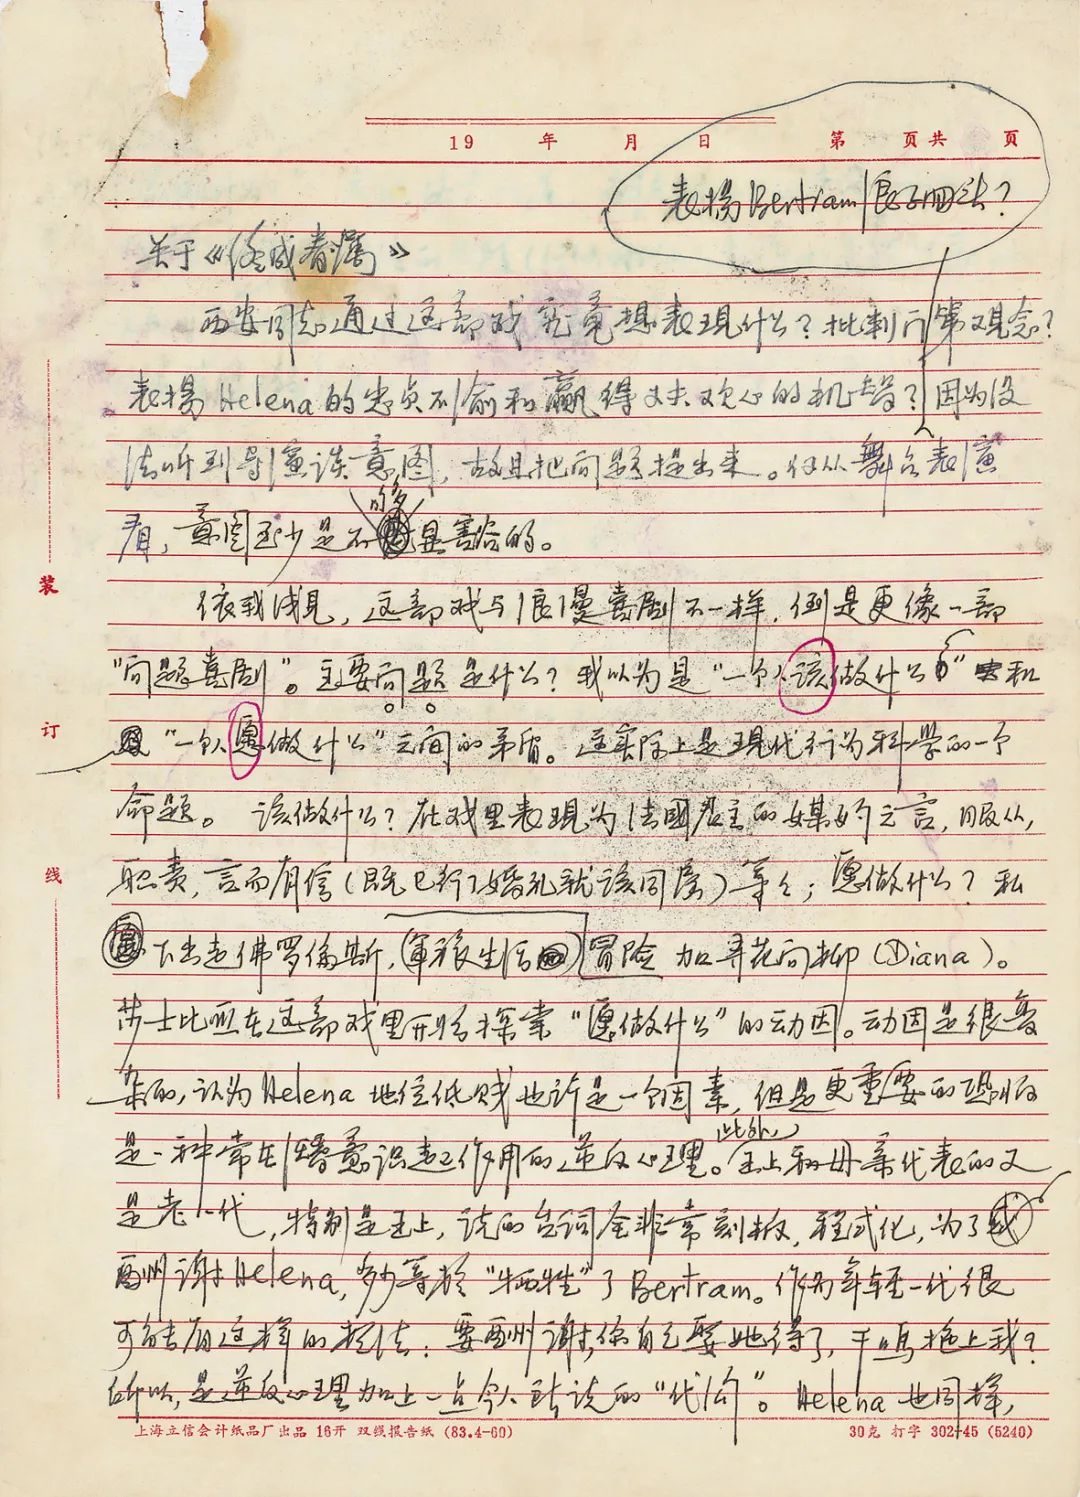 19 年 月 日 第 页共 页
表扬Bertram浪子回头?
关于《终成眷属》
西安同志通过这部戏究竟想表现什么?批判门第观念?
表扬Helena的忠贞不渝和赢得丈夫欢心的机智?因为没
法听到导演谈意图,故且把问题提出来。但从舞台表演
看,意图至少是不够
显豁的。
依我浅见,这部戏与浪漫喜剧不一样,倒是更像一部
“问题喜剧”。主要问题是什么?我以为是“一个人该做什么”和
“一个人愿做什么”之间的矛盾。这实际上是现代行为科学的一个
命题。该做什么?在戏里表现为法國君主的媒妁之言,服从,
职责,言而有信(既已行了婚礼就该同房)等等;愿做什么?私
下出走佛罗倫斯,(軍旅生活)冒险加寻花问柳(Diana)。
莎士比亚在这部戏里开始探索“愿做什么”的动因。动因是很复
杂的,认为Helena地位低贱也许是一个因素,但是更重要的恐怕
是一种常在潜意识起作用的逆反心理。此外,王上和母亲代表的又
是老一代,特别是王上,说的台词全非常刻板,程式化,为了
酬谢Helena,多少等於“牺牲”了Bertram。作为年轻一代很
可能有这样的想法:要酬谢,你自己娶她得了,干嘛拖上我?
所以,是逆反心理加上一点今人所谈的“代沟”。Helena也同样,
装
订
线
上海立信会计纸品厂出品 16开 双线报告纸 (83.4-60) 30克 打字 302-45 (5240)